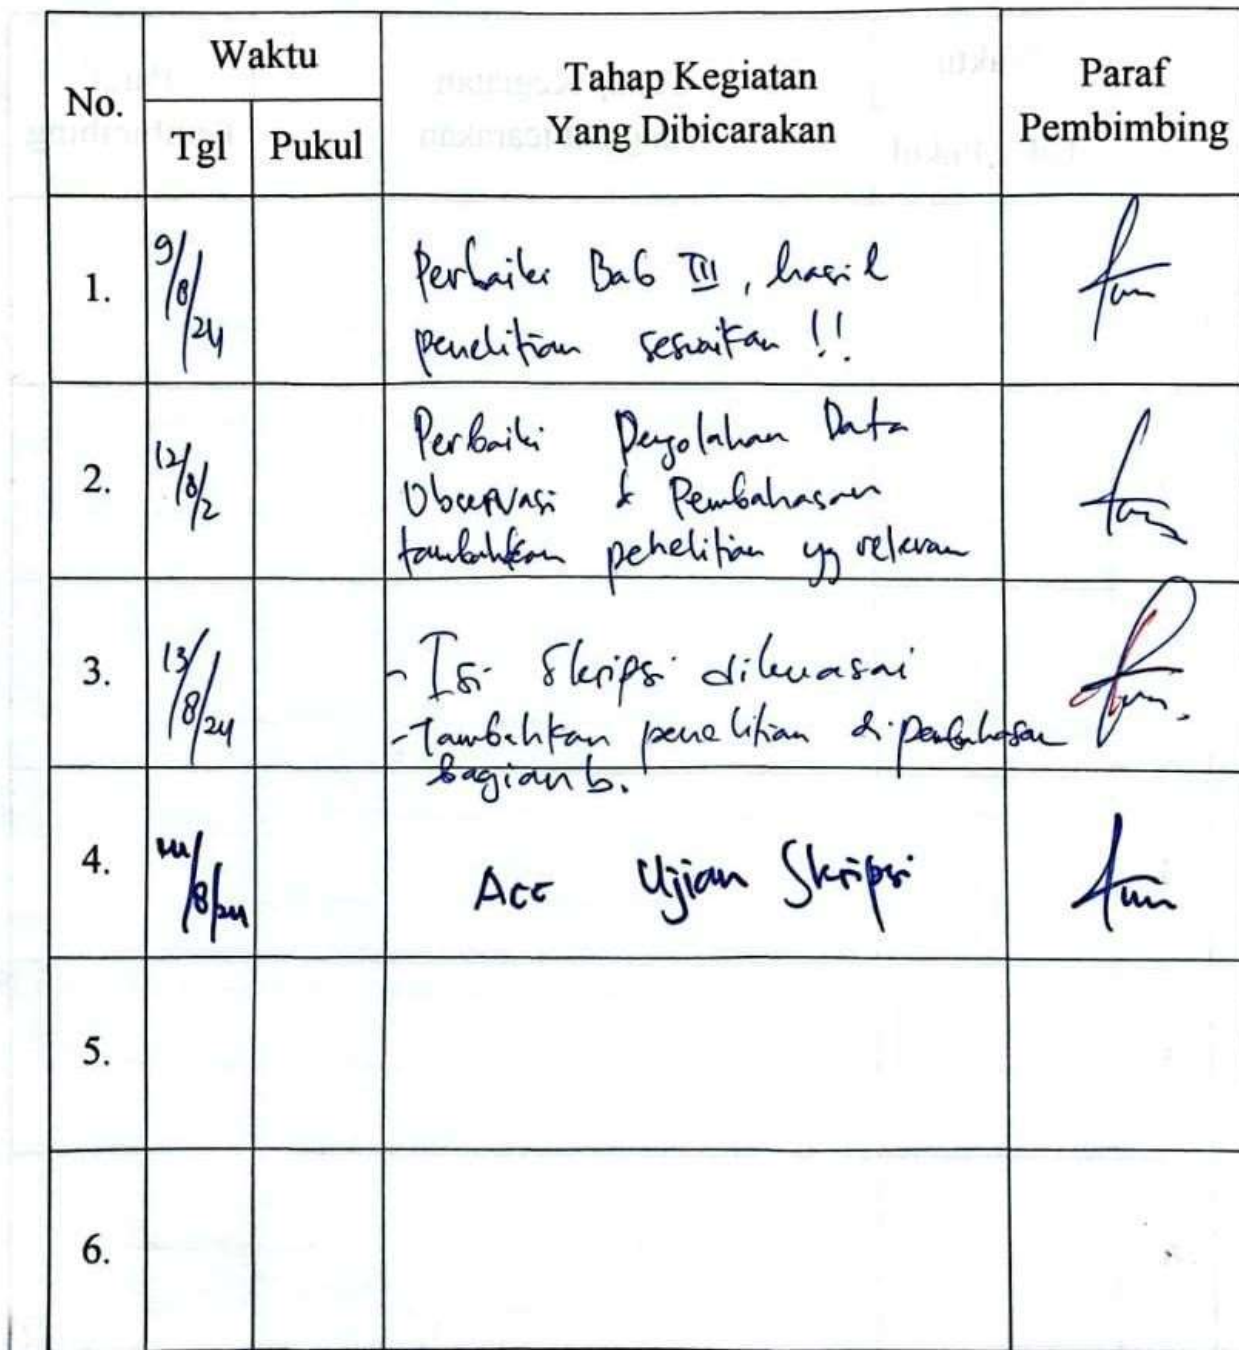 Waktu
No.
Tahap Kegiatan
Yang Dibicarakan
Paraf
Pembimbing
Tgl
Pukul
1.
9/8/24
Perbaiki Bab III, hasil
penelitian sesuaikan !!
2.
12/8/2
Perbaiki Pengolahan Data
Observasi & Pembahasan
tambahkan penelitian yg relevan
3.
13/8/24
- Isi Skripsi dikuasai
- Tambahkan penelitian di pembahasan
bagian b.
4.
/8/24
Acc Ujian Skripsi
5.
6.